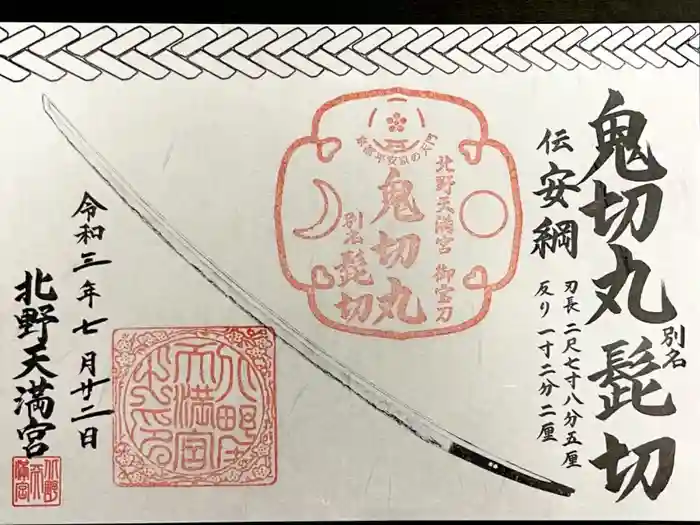 鬼切丸 別名 髭切
伝 安綱
刃長 二尺七寸八分五厘
反り 一寸二分二厘
京都平安京の天門
北野天満宮 御宝刀
鬼切丸
別名 髭切
令和三年七月廿二日
北野天満宮
北野天満宮